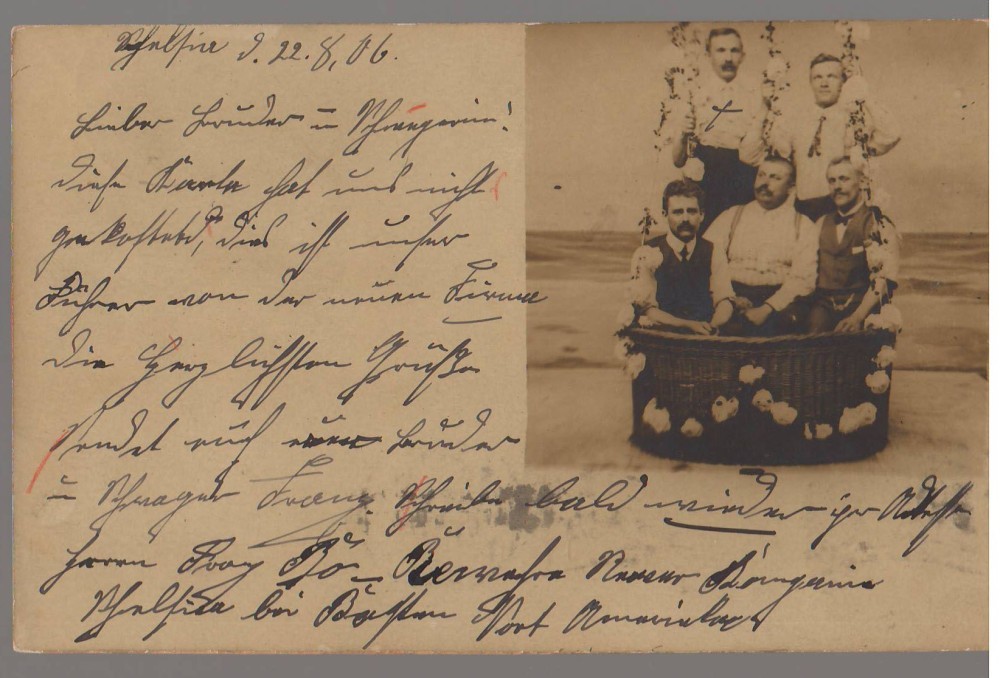 Schelsia d. 22.8.06.
Lieber Bruder u Schwägerin!
diese Karte hat uns nicht
gekostet, dies ist unser
Führer von der neuen Firma
die Herzlichsten Grüße
sendet euch euer Bruder
u Schwager Franz. Schreibe bald wieder
Herrn Franz
Schelsia bei Bosten Nort Amerika